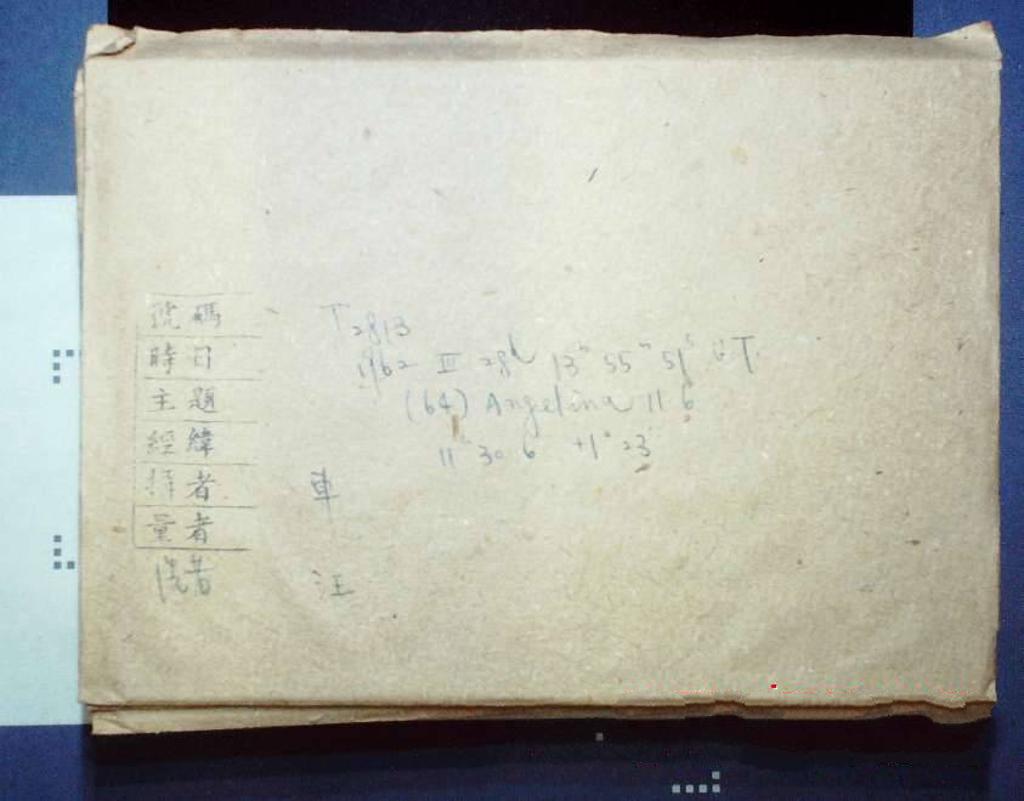 號碼 T2813
時日 1962 III 28d 13h 55m 51s UT
主題 (64) Angelina 11.6
經緯 11h 30.6 +1° 23'
者 車
量者
洗者 汪